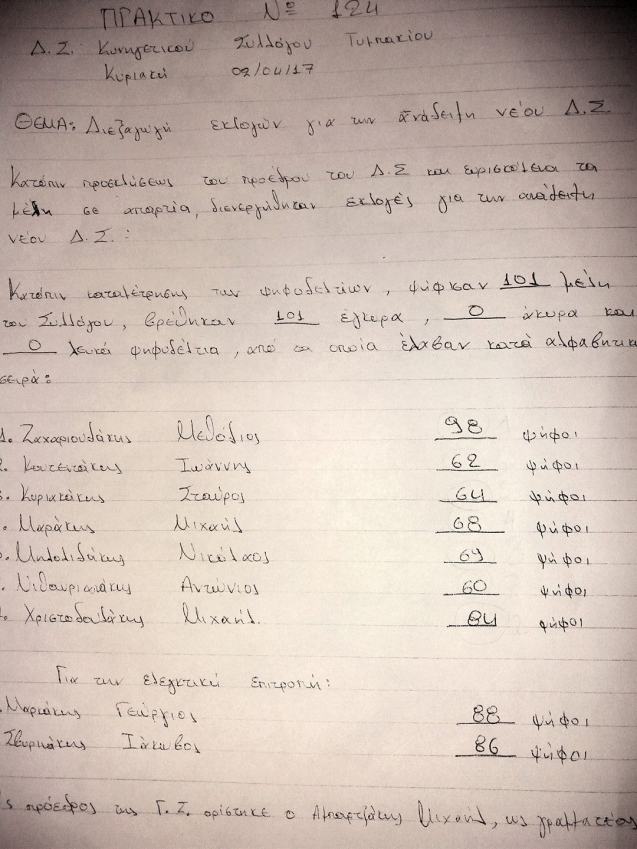 ΠΡΑΚΤΙΚΟ Νº 124
Δ.Σ. Κυνηγετικού Συλλόγου Τυμπακίου
Κυριακή 02/04/17
ΘΕΜΑ: Διεξαγωγή εκλογών για την ανάδειξη νέου Δ.Σ
Κατόπιν προσκλήσεως του προέδρου του Δ.Σ και ευρισκόμενα τα
μέλη σε απαρτία, διενεργήθηκαν εκλογές για την ανάδειξη
νέου Δ.Σ.:
Κατόπιν καταμέτρησης των ψηφοδελτίων, ψήφισαν 101 μέλη
του Συλλόγου, βρέθηκαν 101 έγκυρα, 0 άκυρα και
0 λευκά ψηφοδέλτια, από τα οποία έλαβαν κατά αλφαβητικ
σειρά:
1. Ζαχαριουδάκης Μεθόδιος 98 ψήφοι
Κουτεντάκης Ιωάννης 62 ψήφοι
Κυριακάκης Σταύρος 64 ψήφοι
Μαράκης Μιχαήλ 68 ψήφοι
Νικόλαος 69 ψήφοι
Νιθαυριανάκης Αντώνιος 60 ψήφοι
Χριστοδουλάκης Μιχαήλ. 84 ψήφοι
Για την ελεγκτική επιτροπή:
Γεώργιος 88 ψήφοι
Ιάκωβος 86 ψήφοι
ς πρόεδρος της Γ.Σ. ορίστηκε ο Μιχαήλ, ως γραμματέας